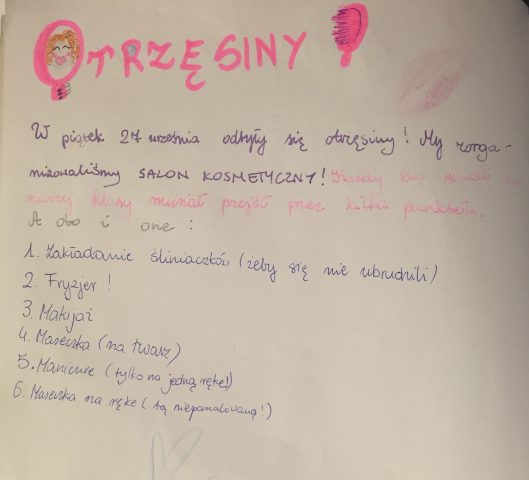 OTRZĘSINY
W piątek 27 września odbyły się otrzęsiny! My zorga-
nizowaliśmy SALON KOSMETYCZNY! Każdy kto do
naszej klasy musiał przejść przez kilka punktów.
A oto i one:
1. Zakładanie śliniaczków (żeby się nie ubrudnili)
2. Fryzjer!
3. Makijaż
4. Maseczka (na twarz)
5. Manicure (tylko na jedną rękę!)
6. Maseczka na rękę (tą niepomalowaną!)